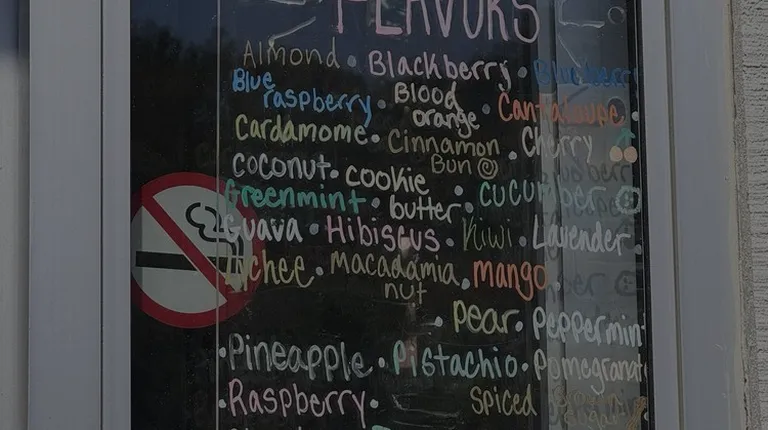 FLAVORS
Almond • Blackberry • Blueberri
Blue raspberry • Blood orange • Cantaloupe •
Cardamome • Cinnamon Bun • Cherry
Coconut • cookie butter • cucumber
Greenmint •
Guava • Hibiscus • Kiwi • Lavender •
Lychee • Macadamia nut • mango
• Pear • Peppermin
• Pineapple • Pistachio • Pomegrana
• Raspberry • spiced